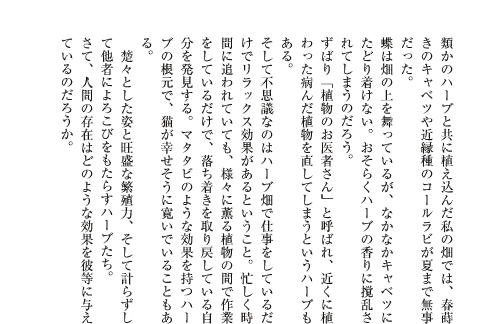 類かのハーブと共に植え込んだ私の畑では、春蒔
きのキャベツや近縁種のコールラビが夏まで無事
だった。
蝶は畑の上を舞っているが、なかなかキャベツに
たどり着けない。おそらくハーブの香りに撹乱さ
れてしまうのだろう。
ずばり「植物のお医者さん」と呼ばれ、近くに植
わった病んだ植物を直してしまうというハーブも
ある。
そして不思議なのはハーブ畑で仕事をしているだ
けでリラックス効果があるということ。忙しく時
間に追われていても、様々に薫る植物の間で作業
をしているだけで、落ち着きを取り戻している自
分を発見する。マタタビのような効果を持つハー
ブの根元で、猫が幸せそうに寛いでいることもあ
る。
楚々とした姿と旺盛な繁殖力、そして計らずし
て他者によろこびをもたらすハーブたち。
さて、人間の存在はどのような効果を彼等に与え
ているのだろうか。